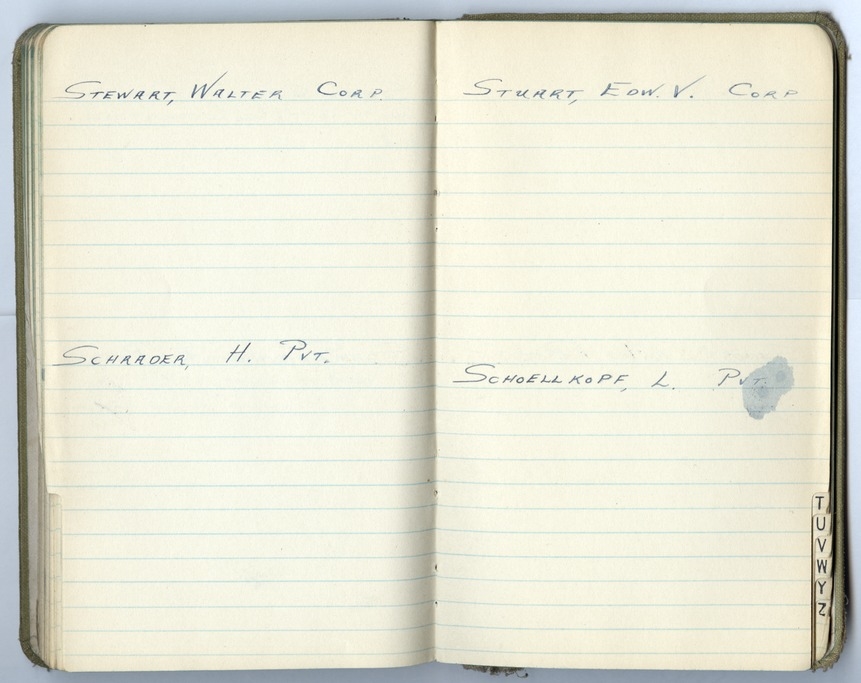 STEWART, WALTER CORP.
SCHRADER, H. PVT.
STUART, EDW. V. CORP
SCHOELLKOPF, L. PVT.
T
U
V
W
Y
Z